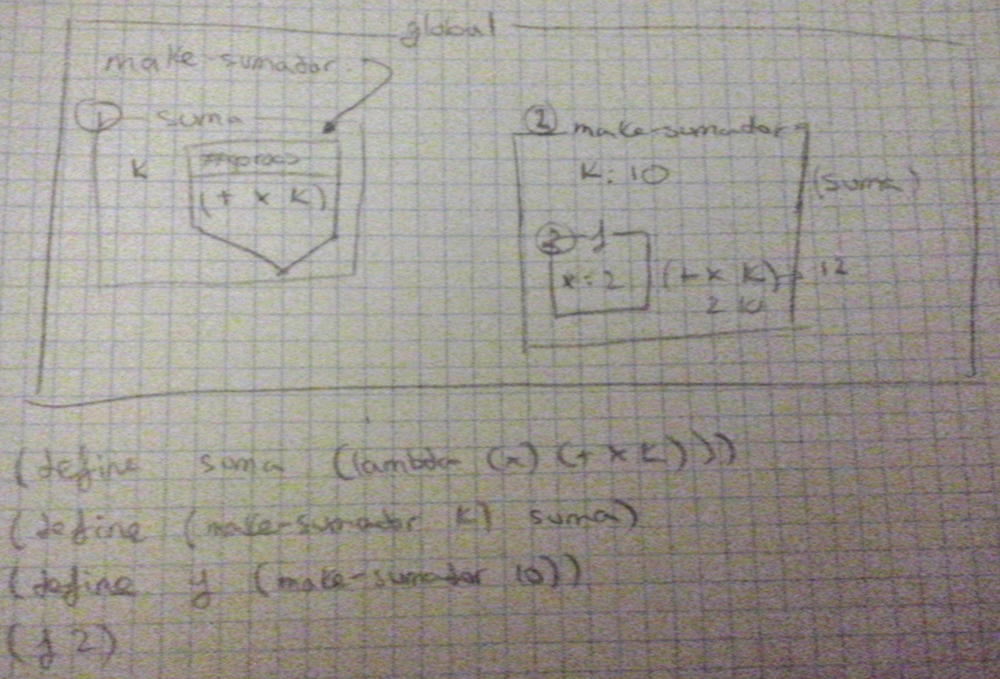 global
make-sumador
① suma
K
(+ x K)
② make-sumador
K: 10
(suma)
③ f
x: 2 (+ x K) → 12
2 10
(define suma (lambda (x) (+ x K)))
(define (make-sumador K) suma)
(define f (make-sumador 10))
(f 2)